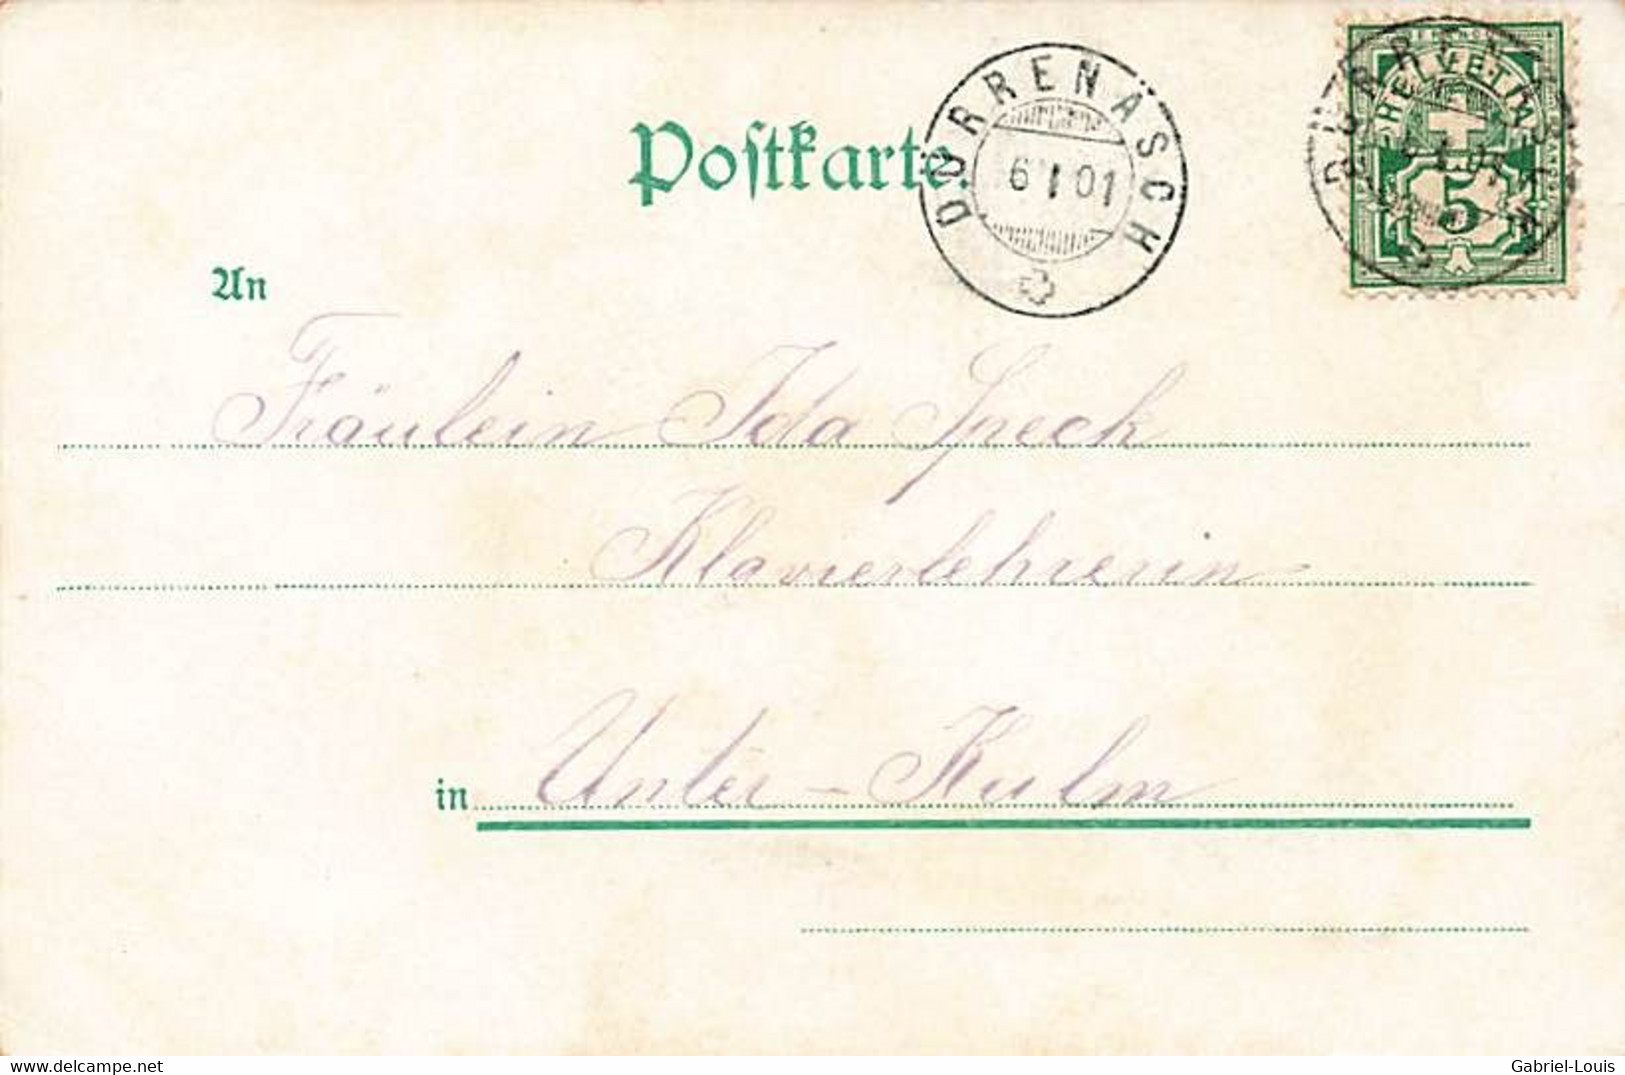 Postkarte.
DÜRRENÄSCH
6 I 01
HELVETIA
5
An
Fräulein Ida Speck
Klavierlehrerin
in Unter-Kulm
www.delcampe.net
Gabriel-Louis